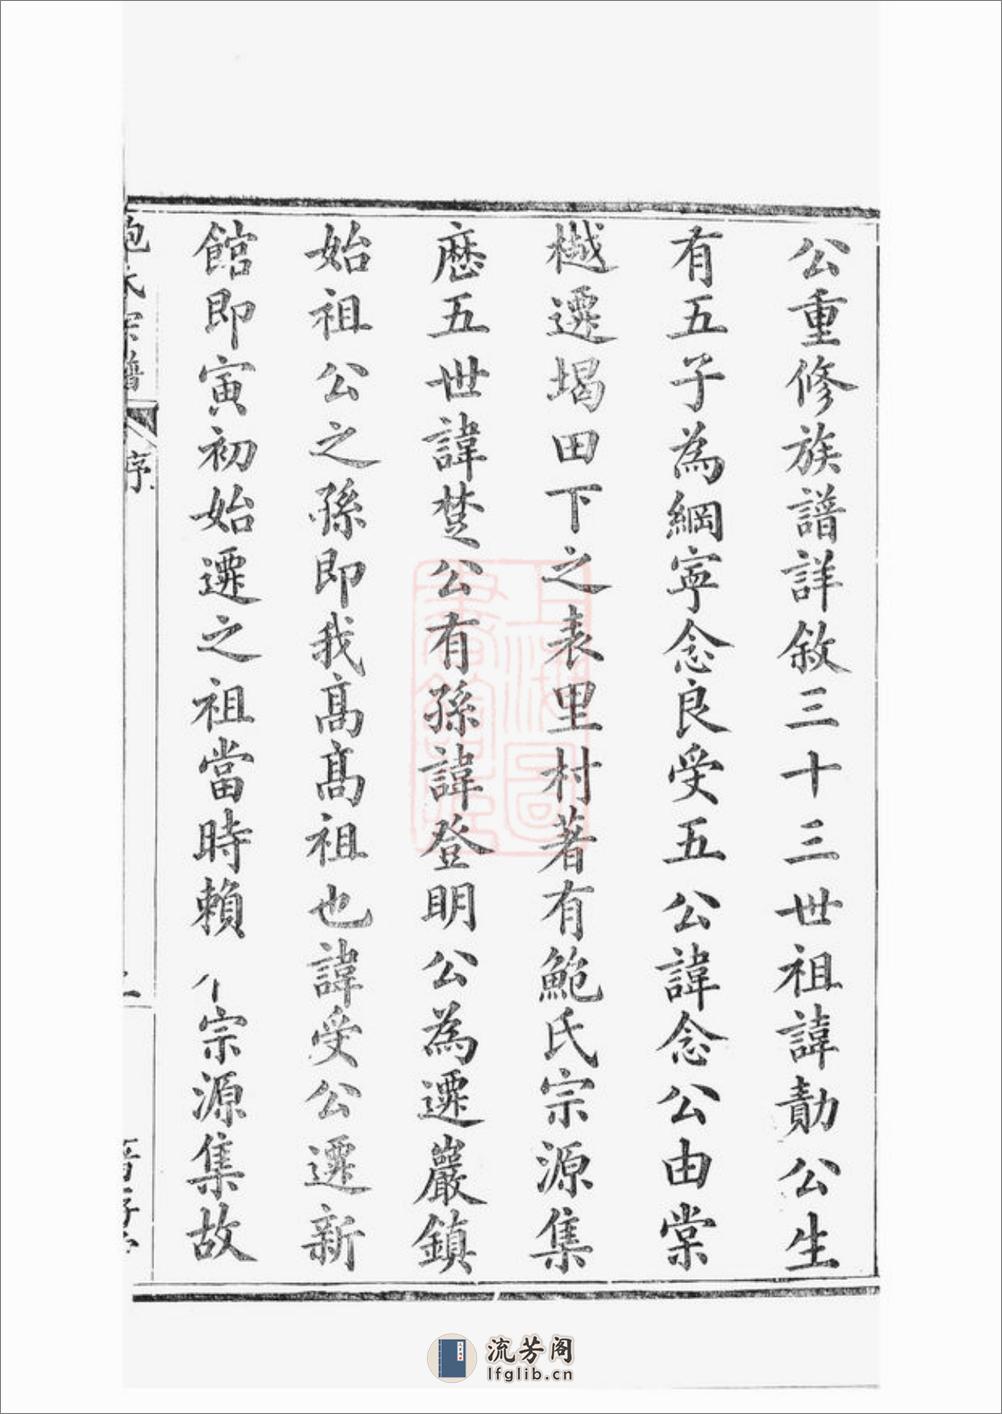 公重修族譜詳敘三十三世祖諱勣公生
有五子為綱寧念良受五公諱念公由棠
樾遷堨田下之表里村著有鮑氏宗源集
歷五世諱楚公有孫諱登明公為遷巖鎮
始祖公之孫即我高高祖也諱受公遷新
館即寅初始遷之祖當時賴 宗源集故
鮑氏宗譜
序
上海圖書館藏
流芳阁
lfglib.cn